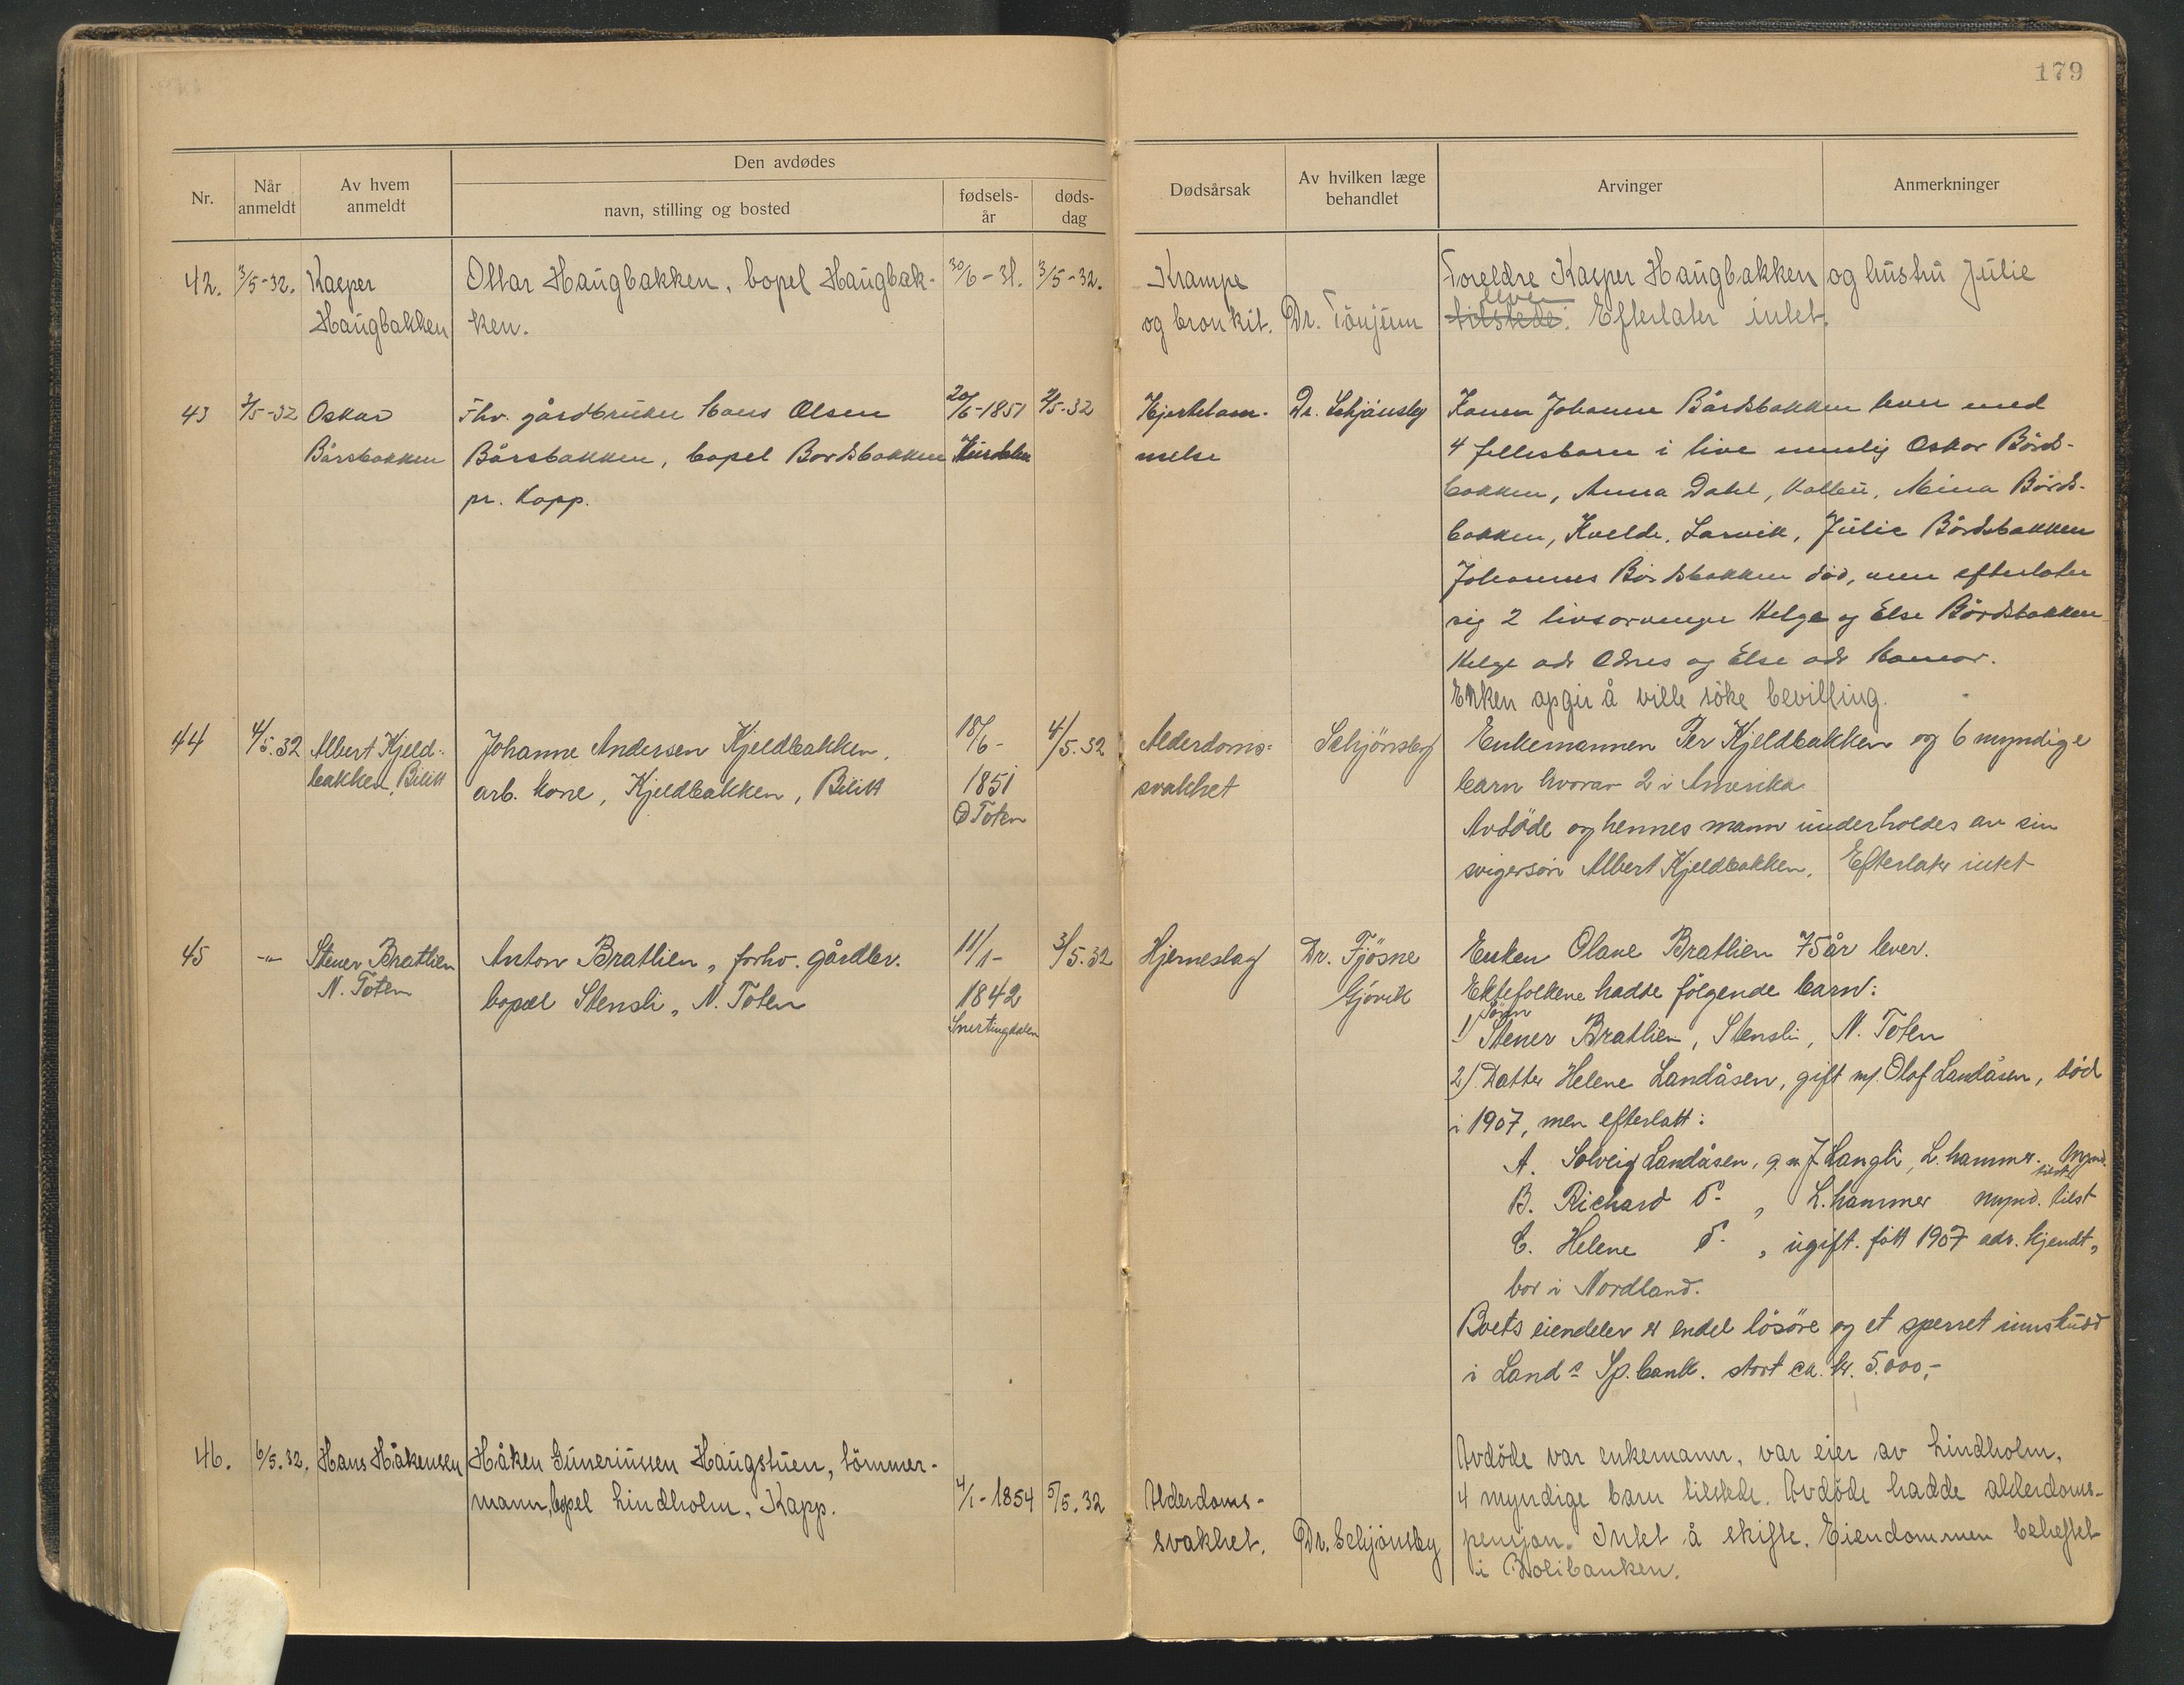 179
Nr.
Når anmeldt
Av hvem anmeldt
Den avdødes
navn, stilling og bosted
fødsels-år
døds-dag
Dødsårsak
Av hvilken læge behandlet
Arvinger
Anmerkninger
42. 3/5-32. Kasper Haugbakken
Ottar Haugbakken, bopel Haugbak-
ken.
30/6-31. 3/5-32.
Krampe
og bronkit. Dr. Tönjum
Foreldre Kasper Haugbakken og hustru Julie
lever
tilstede. Efterlater intet.
43 3/5-32 Oskar
Bårsbakken
Fhv. gårdbruker Hans Olsen
Bårsbakken, bopel Bordsbakken
pr. Kapp.
20/6-1851 2/5-32
Hurdalen
Hjertelam-
melse
Dr. Schjönsby
Konen Johanne Bårdsbakken lever med
4 fellesbarn i live nemlig Oskar Bårds-
bakken, Anna Dahl, Kolbu, Mina Bårds-
bakken, Kvelde, Larvik, Julie Bårdsbakken
Johannes Bårdsbakken död, men efterlater
sig 2 livsarvinger Helge og Else Bårdsbakken
Helge adr Odnes og Else adr Hamar.
Enken opgir å ville söke bevilling.
44 4/5.32 Albert Kjeld-
bakken, Bilitt
Johanne Andersen Kjeldbakken,
arb. kone, Kjeldbakken, Bilitt
18/6-
1851
Ø Toten
4/5.32
Alderdoms-
svakhet
Schjönsby
Enkemannen Per Kjeldbakken og 6 myndige
barn hvorav 2 i Amerika
Avdöde og hennes mann underholdes av sin
svigersön Albert Kjeldbakken. Efterlater intet
45 -"- Stener Bratlien
N. Toten
Anton Bratlien, forhv. gårdbr.
bopæl Stensli, N. Toten
11/1-
1842
Snertingdalen
3/5.32
Hjerneslag
Dr. Fjösne
Gjövik
Enken Olave Bratlien 75 år lever.
Ektefolkene hadde fölgende barn:
Sönn
1) Stener Bratlien, Stensli, N. Toten
2) Datter Helene Landåsen, gift m/. Olaf Landåsen, död
i 1907, men efterlatt:
A. Solveig Landåsen, g. m. J. Langli, L.hammer. Mynd.
tilst
B. Richard D- , L.hammer mynd. tilst
C. Helene D- , ugift. fött 1907 adr. kjendt,
bor i Nordland.
Boets eiendeler er endel lösöre og et sperret innskudd
i Lands Sp.bank. stort ca. kr. 5.000,-
46. 6/5.32. Hans Håkensen
Håken Gunerius­sen Haugstuen, tömmer-
mann, bopel Lindholm, Kapp.
4/1-1854 5/5.32
Alderdoms-
svakhet. Dr. Schjönsby
Avdöde var enkemann, var eier av Lindholm,
4 myndige barn tilstede. Avdöde hadde alderdoms-
pensjon. Intet å skifte. Eiendommen beheftet
i Bolibanken.